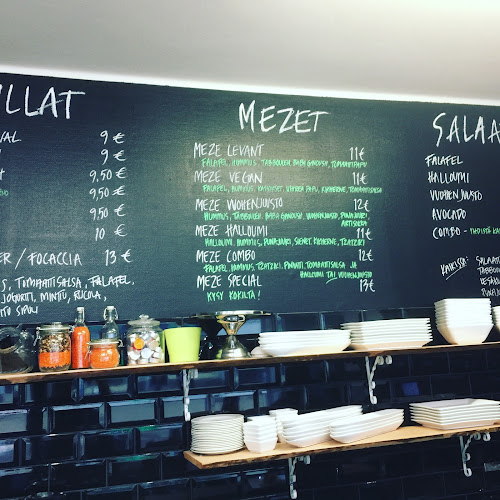 LLAT
9 €
9 €
9,50 €
9,50 €
9,50 €
10 €
/ FOCACCIA 13 €
TOMAATTISALSA, FALAFEL,
JOGURTTI, MINTU, RUCOLA,
SIPULI
MEZET
MEZE LEVANT 11 €
FALAFEL, HUMMUS, TABBOULEH, BABA GANOUSH, TOMAATTIPAPU
MEZE VEGAN 11 €
FALAFEL, HUMMUS,
MEZE VUOHENJUUSTO 12 €
HUMMUS, TABBOULEH, BABA GANOUSH, VUOHENJUUSTO, PUNAJUURI
ARTISOKKA
MEZE HALLOUMI 11 €
HALLOUMI, HUMMUS, PUNAJUURI, SIENET, TZATZIKI
MEZE COMBO 12 €
FALAFEL, HUMMUS, TZATZIKI, TOMAATTISALSA JA
HALLOUMI TAI VUOHENJUUSTO
MEZE SPECIAL 13 €
KYSY KOKILTA!
SALAA
FALAFEL
HALLOUMI
VUOHENJUUSTO
AVOCADO
COMBO - YHDISTÄ